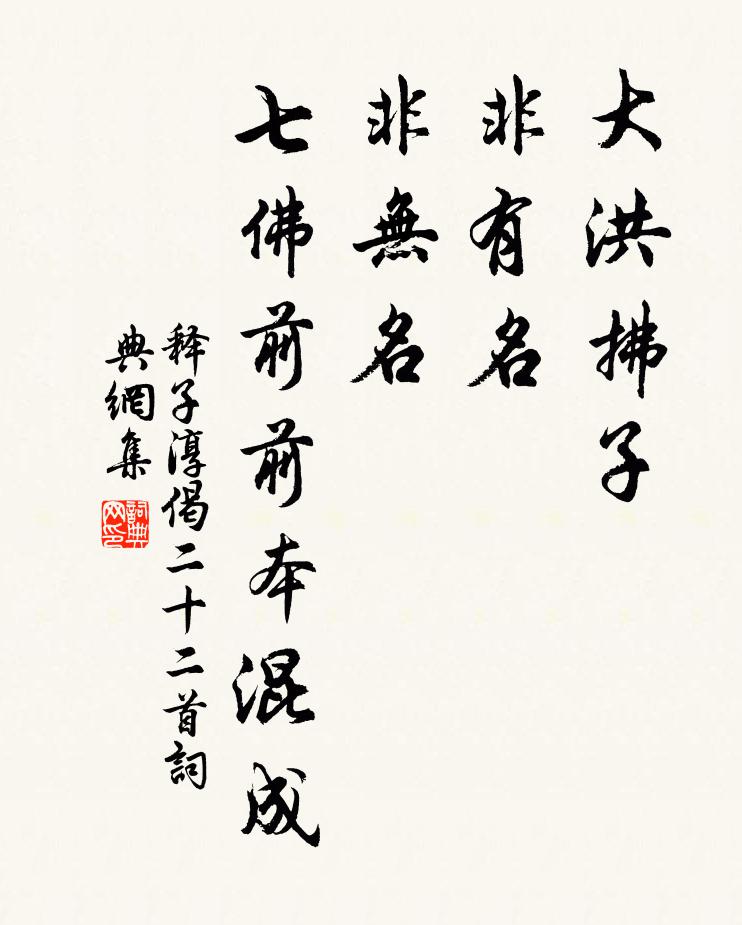 大洪拂子
非有名
非無名
七佛前前本混成
释子淳偈二十二首詞
典網集
詞典网印